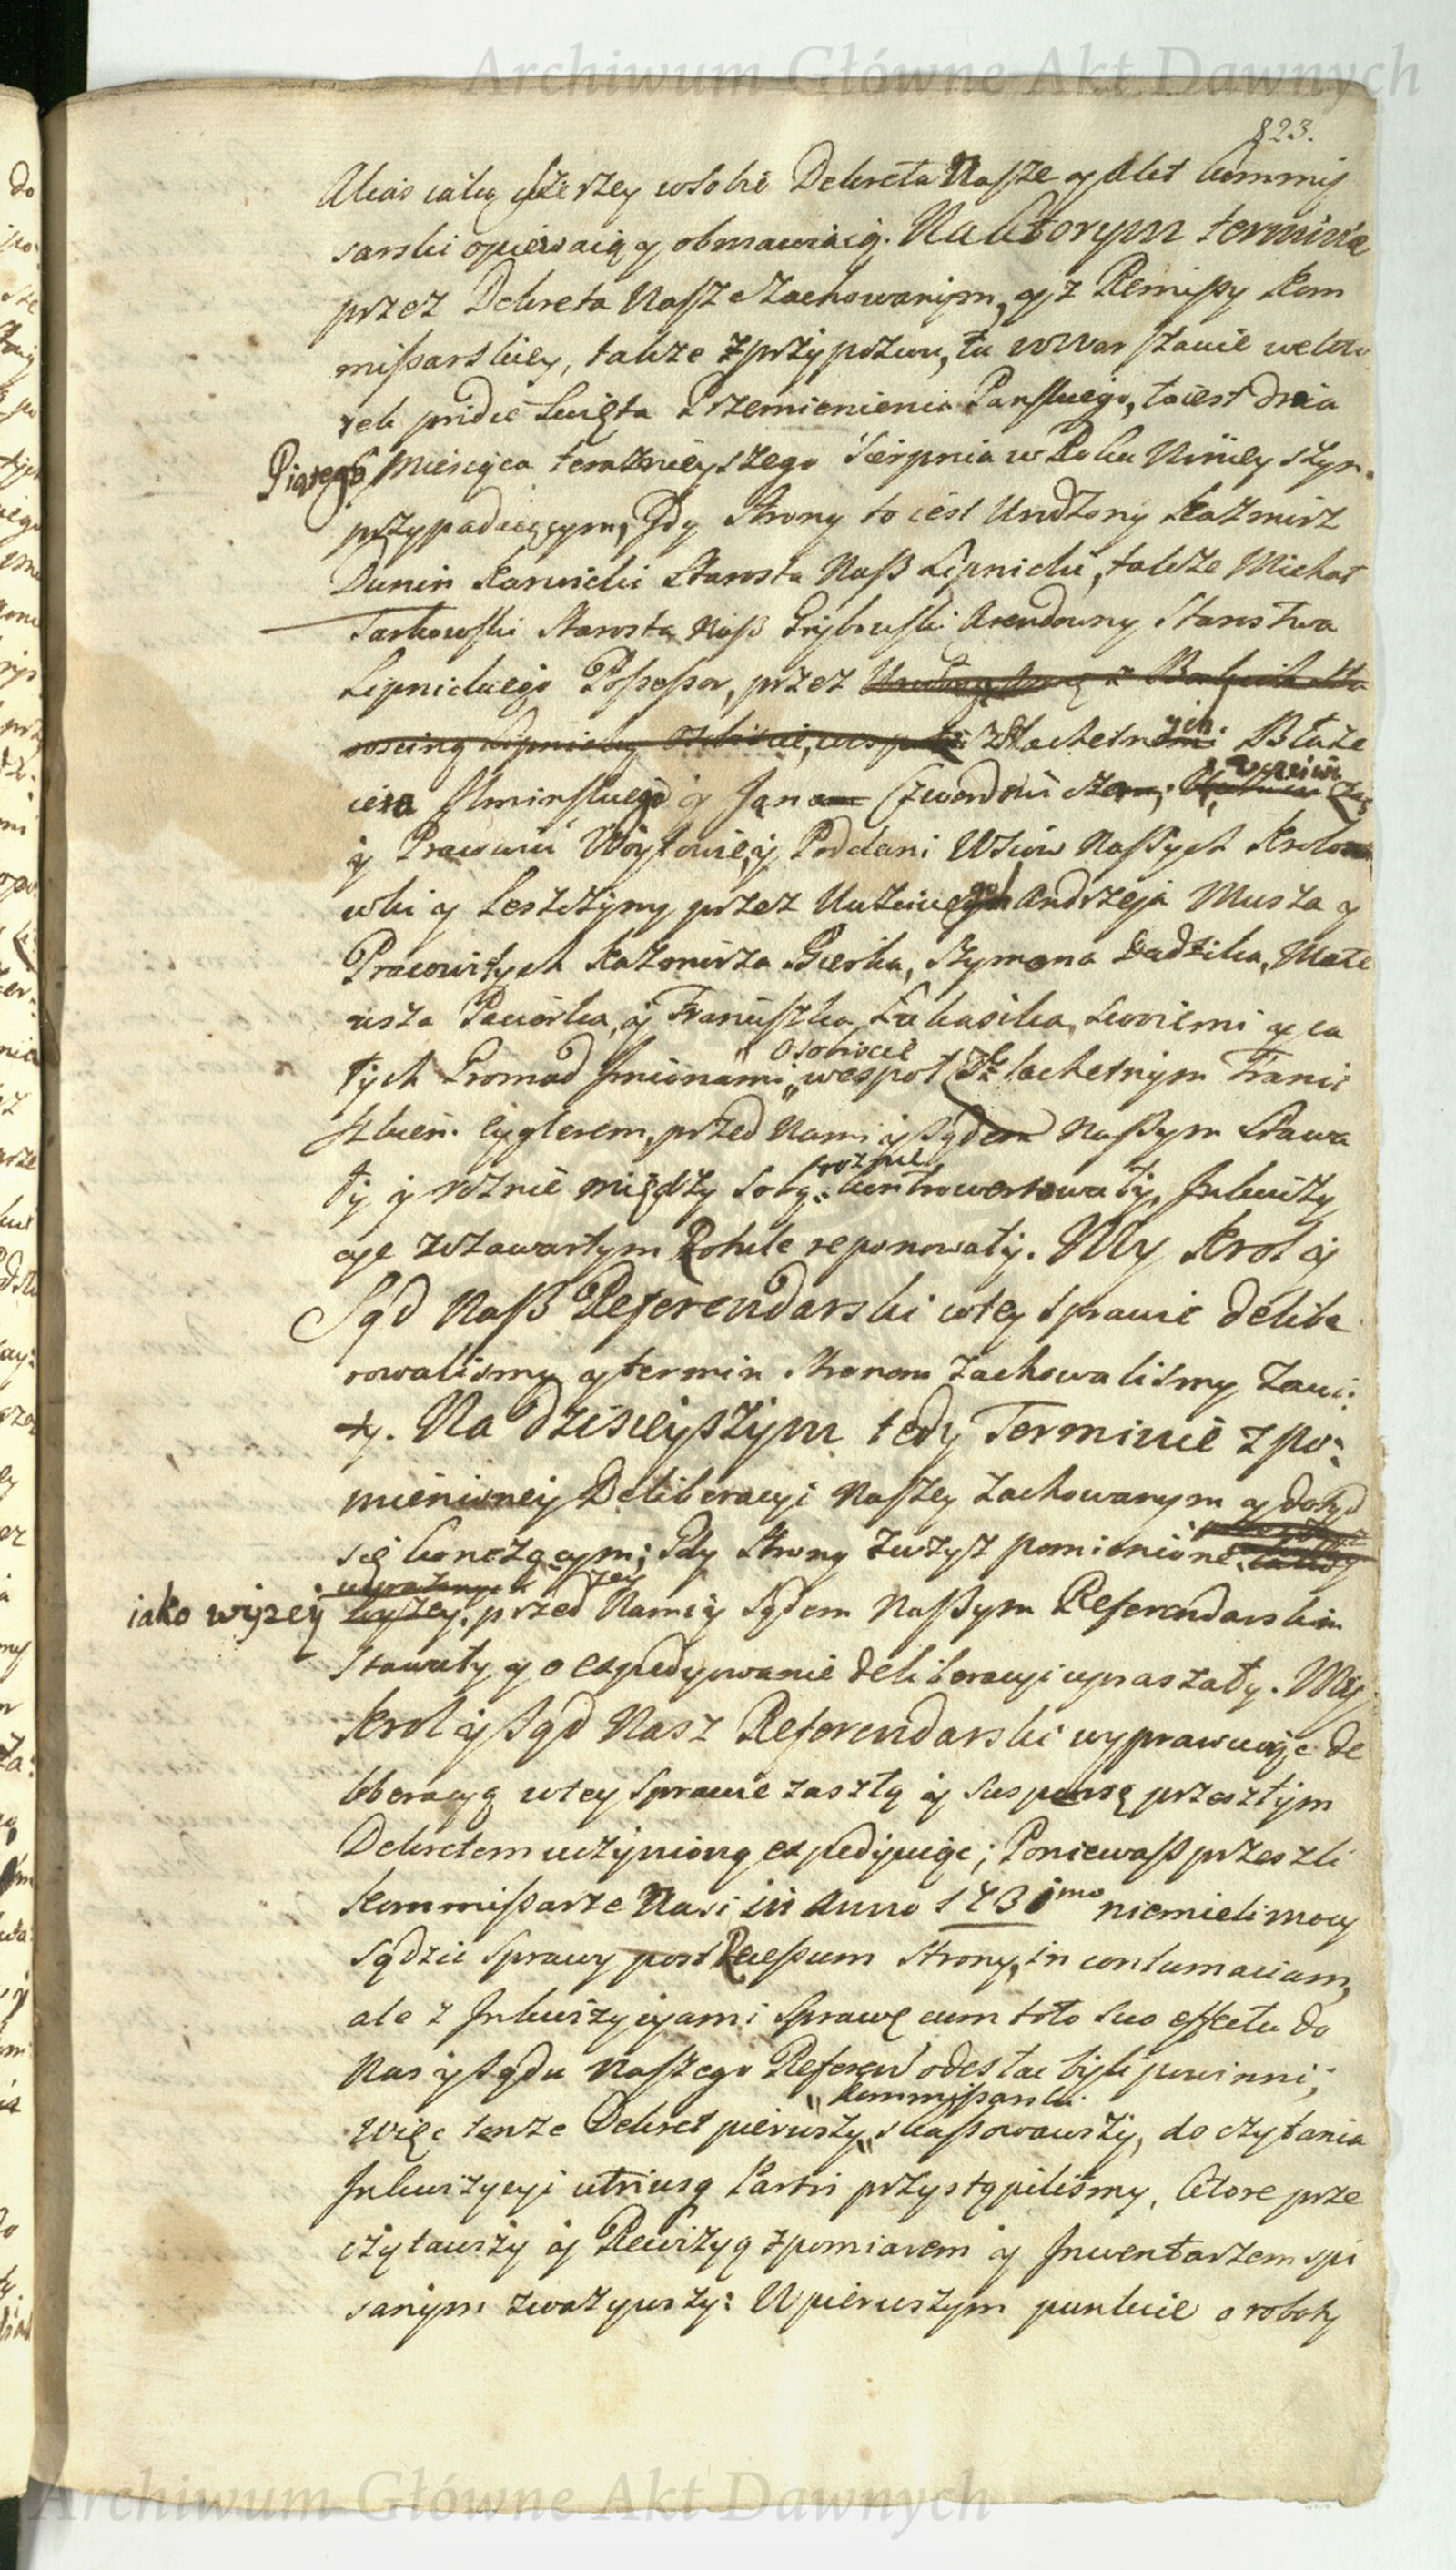 Archiwum Główne Akt Dawnych
823.
szerzey w sobie Dekreta Nasze y Akt kommis
sarski opiewaią y obmawiaią. Na ktorym terminie
przez Dekreta Nasze zachowanym, y z Remissy Kom
missarskiey, także z przypozwu, tu w Warszawie
pridie Swięta Przemienienia Panskiego, to iest dnia
Piątego Miesiąca teraznieyszego Sierpnia w Roku Ninieyszym
przypadaiącym, Gdy Strony to iest Urodzony Kazmirz
Dunin Karwicki Starosta Nasz Lipnicki, także Michał
Tarkowski Starosta Nasz Grybowski Arendowny Starostwa
Lipnickiego Possessor, przez
Szlachetnych Błaże
ia y Jana
y Prawnie Woytowie, y Poddani Wsiow Naszych Krolo
wki y Leszczyny przez Andrzeja Musza y
Pracowitych Kazmirza Gierka, Szymona Dadzika, Mate
usza Paciorka, y Franciszka Łukasika, swoiemi y ca
łych Gromad Jmionami osobiscie wespoł z Szlachetnym Franci
szkiem Cyglerem, przed Nami y Sądem Naszym Stawa
ły y rożnie między sobą kontrowertowały, Jnkwizy
cye w zawartym Rotule reponowały. My Krol y
Sąd Nasz Referendarski w tey Sprawie delibe
rowalismy y termin Stronom zachowalismy zawi:
ty. Na Dzisieyszym tedy Terminie z po:
mienioney Deliberacyi Naszey zachowanym y dotąd
się konczącym; Gdy Strony zwysz pomienione
iako wyżey przed Nami y Sądem Naszym Referendarskim
Stawały y o expedyowanie deliberacyi upraszały. My
Krol y Sąd Nasz Referendarski wyprawuiąc de
liberacyą w tey Sprawie zaszłą y suspensę przeszłym
Dekretem uczynioną expedyuiąc; Poniewasz przeszli
Kommissarze Nasi in Anno niemieli mocy
sądzic Sprawy post Recessum Strony, in contumaciam,
ale z Jnkwizycyami Sprawę cum toto suo effectu do
Nas y Sądu Naszego Referen odesłac byli powinni;
Więc tenze Dekret pierwszy Kommissarski skassowawszy, do czytania
Jnkwizycyi utriusq Partis przystąpilismy, ktore prze
czytawszy y Rewizyą z pomiarem y Jnwentarzem spi
sanym zważywszy: W pierwszym punkcie o roboty
Archiwum Główne Akt Dawnych